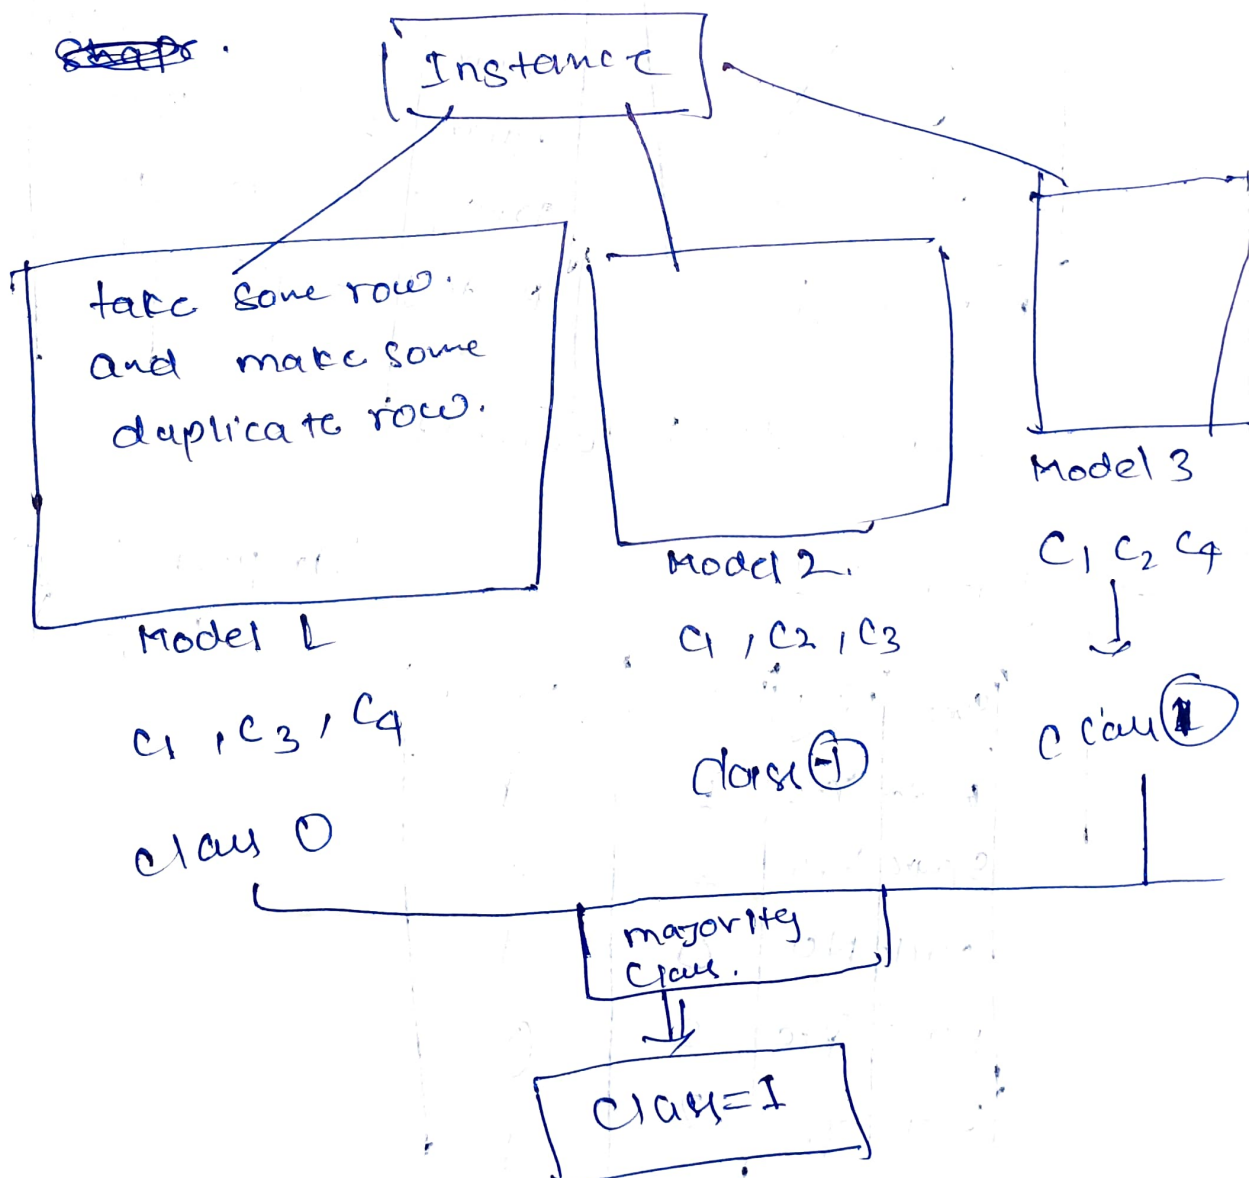 Instance
take some row.
and make some
duplicate row.
Model 1
C1, C3, C4
class 0
Model 2.
C1, C2, C3
class 1
Model 3
C1 C2 C4
class 1
majority
class.
class=1